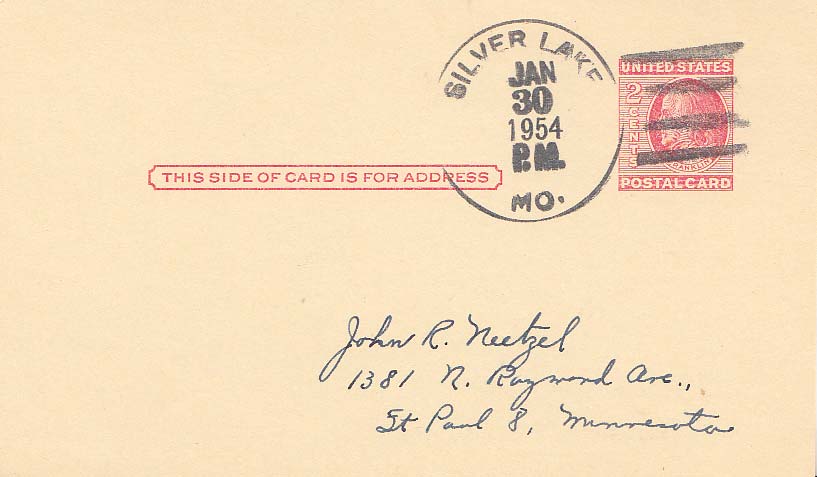 SILVER LAKE
JAN
30
1954
P.M.
MO.
UNITED STATES
2
CENTS
FRANKLIN
POSTAL CARD
THIS SIDE OF CARD IS FOR ADDRESS
John R. Neetzel
1381 N. Raymond Ave.,
St Paul 8, Minnesota